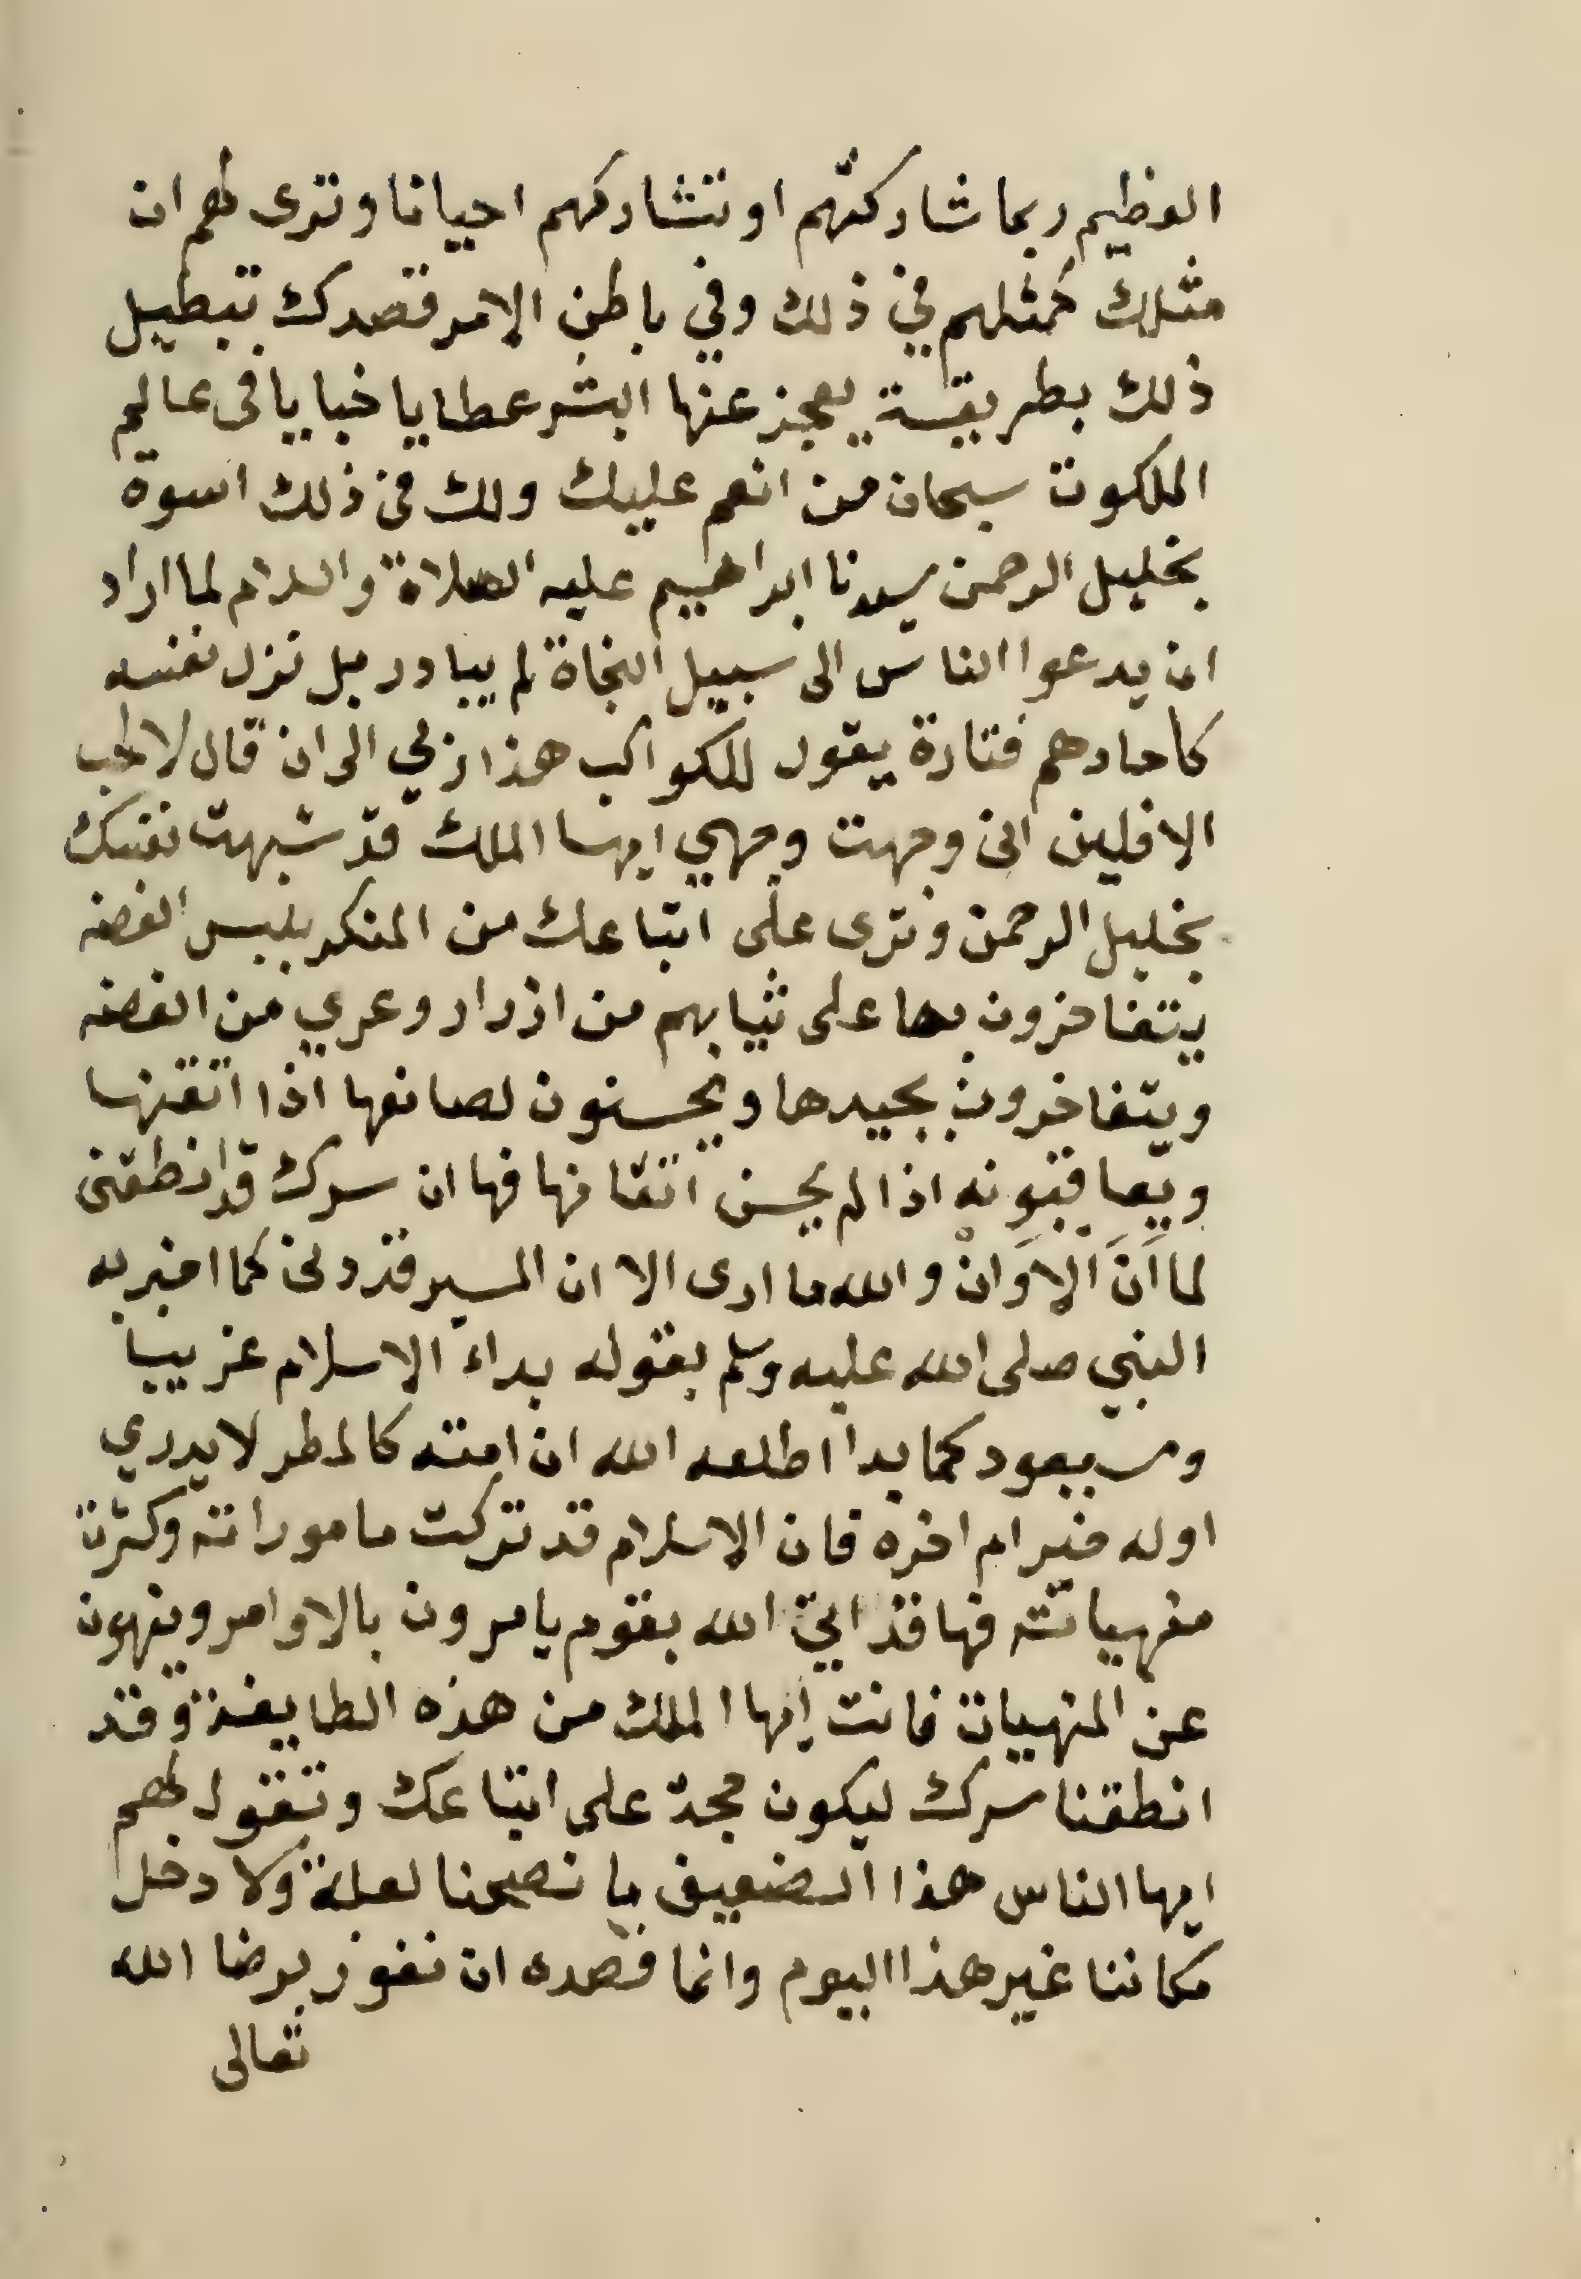 العظيم ربما شاركتهم او تتشاركهم احيانا وترى لهم ان
مثلك كمثلهم في ذلك وفي باطن الامر قصدك تبطيل
ذلك بطريقة يعجز عنها البشر عطايا خبايا في عالم
الملكوت سبحان من انعم عليك ولك في ذلك اسوة
بخليل الرحمن سيدنا ابراهيم عليه الصلاة والسلام لما اراد
ان يدعوا الناس الى سبيل النجاة لم يبادر بل نزل نفسه
كأحادهم فتارة يقول للكواكب هذا ربي الى ان قال لا احب
الافلين اني وجهت وجهي ايها الملك قد شبهت نفسك
بخليل الرحمن وترى على اتباعك من المنكر بلبس الفضه
يتفاخرون بها على ثيابهم من ازرار وعري من الفضه
ويتفاخرون بجيدها ويحسنون لصانعها اذا اتقنها
ويعاقبونه اذا لم يحسن اتقانها فها ان سرك قد انطقني
لما اَنَ الاَوَانْ والله ما ارى الا ان المسير قد دنى كما اخبر به
النبي صلى الله عليه وسلم بقوله بداء الاسلام غريبا
وسيعود كما بدا اطلعه الله ان امته كالمطر لا يدري
اوله خير ام اخره فان الاسلام قد تركت ماموراته وكثرت
منهياته فها قد اتى الله بقوم يامرون بالاوامر وينهون
عن المنهيات فانت ايها الملك من هذه الطايفة وقد
انطقنا سرك ليكون حجة على اتباعك وتقول لهم
ايها الناس هذا الضعيف ما نصحنا لعلة ولا دخل
مكاننا غير هذا اليوم وانما قصده ان نفوز برضا الله
تعالى